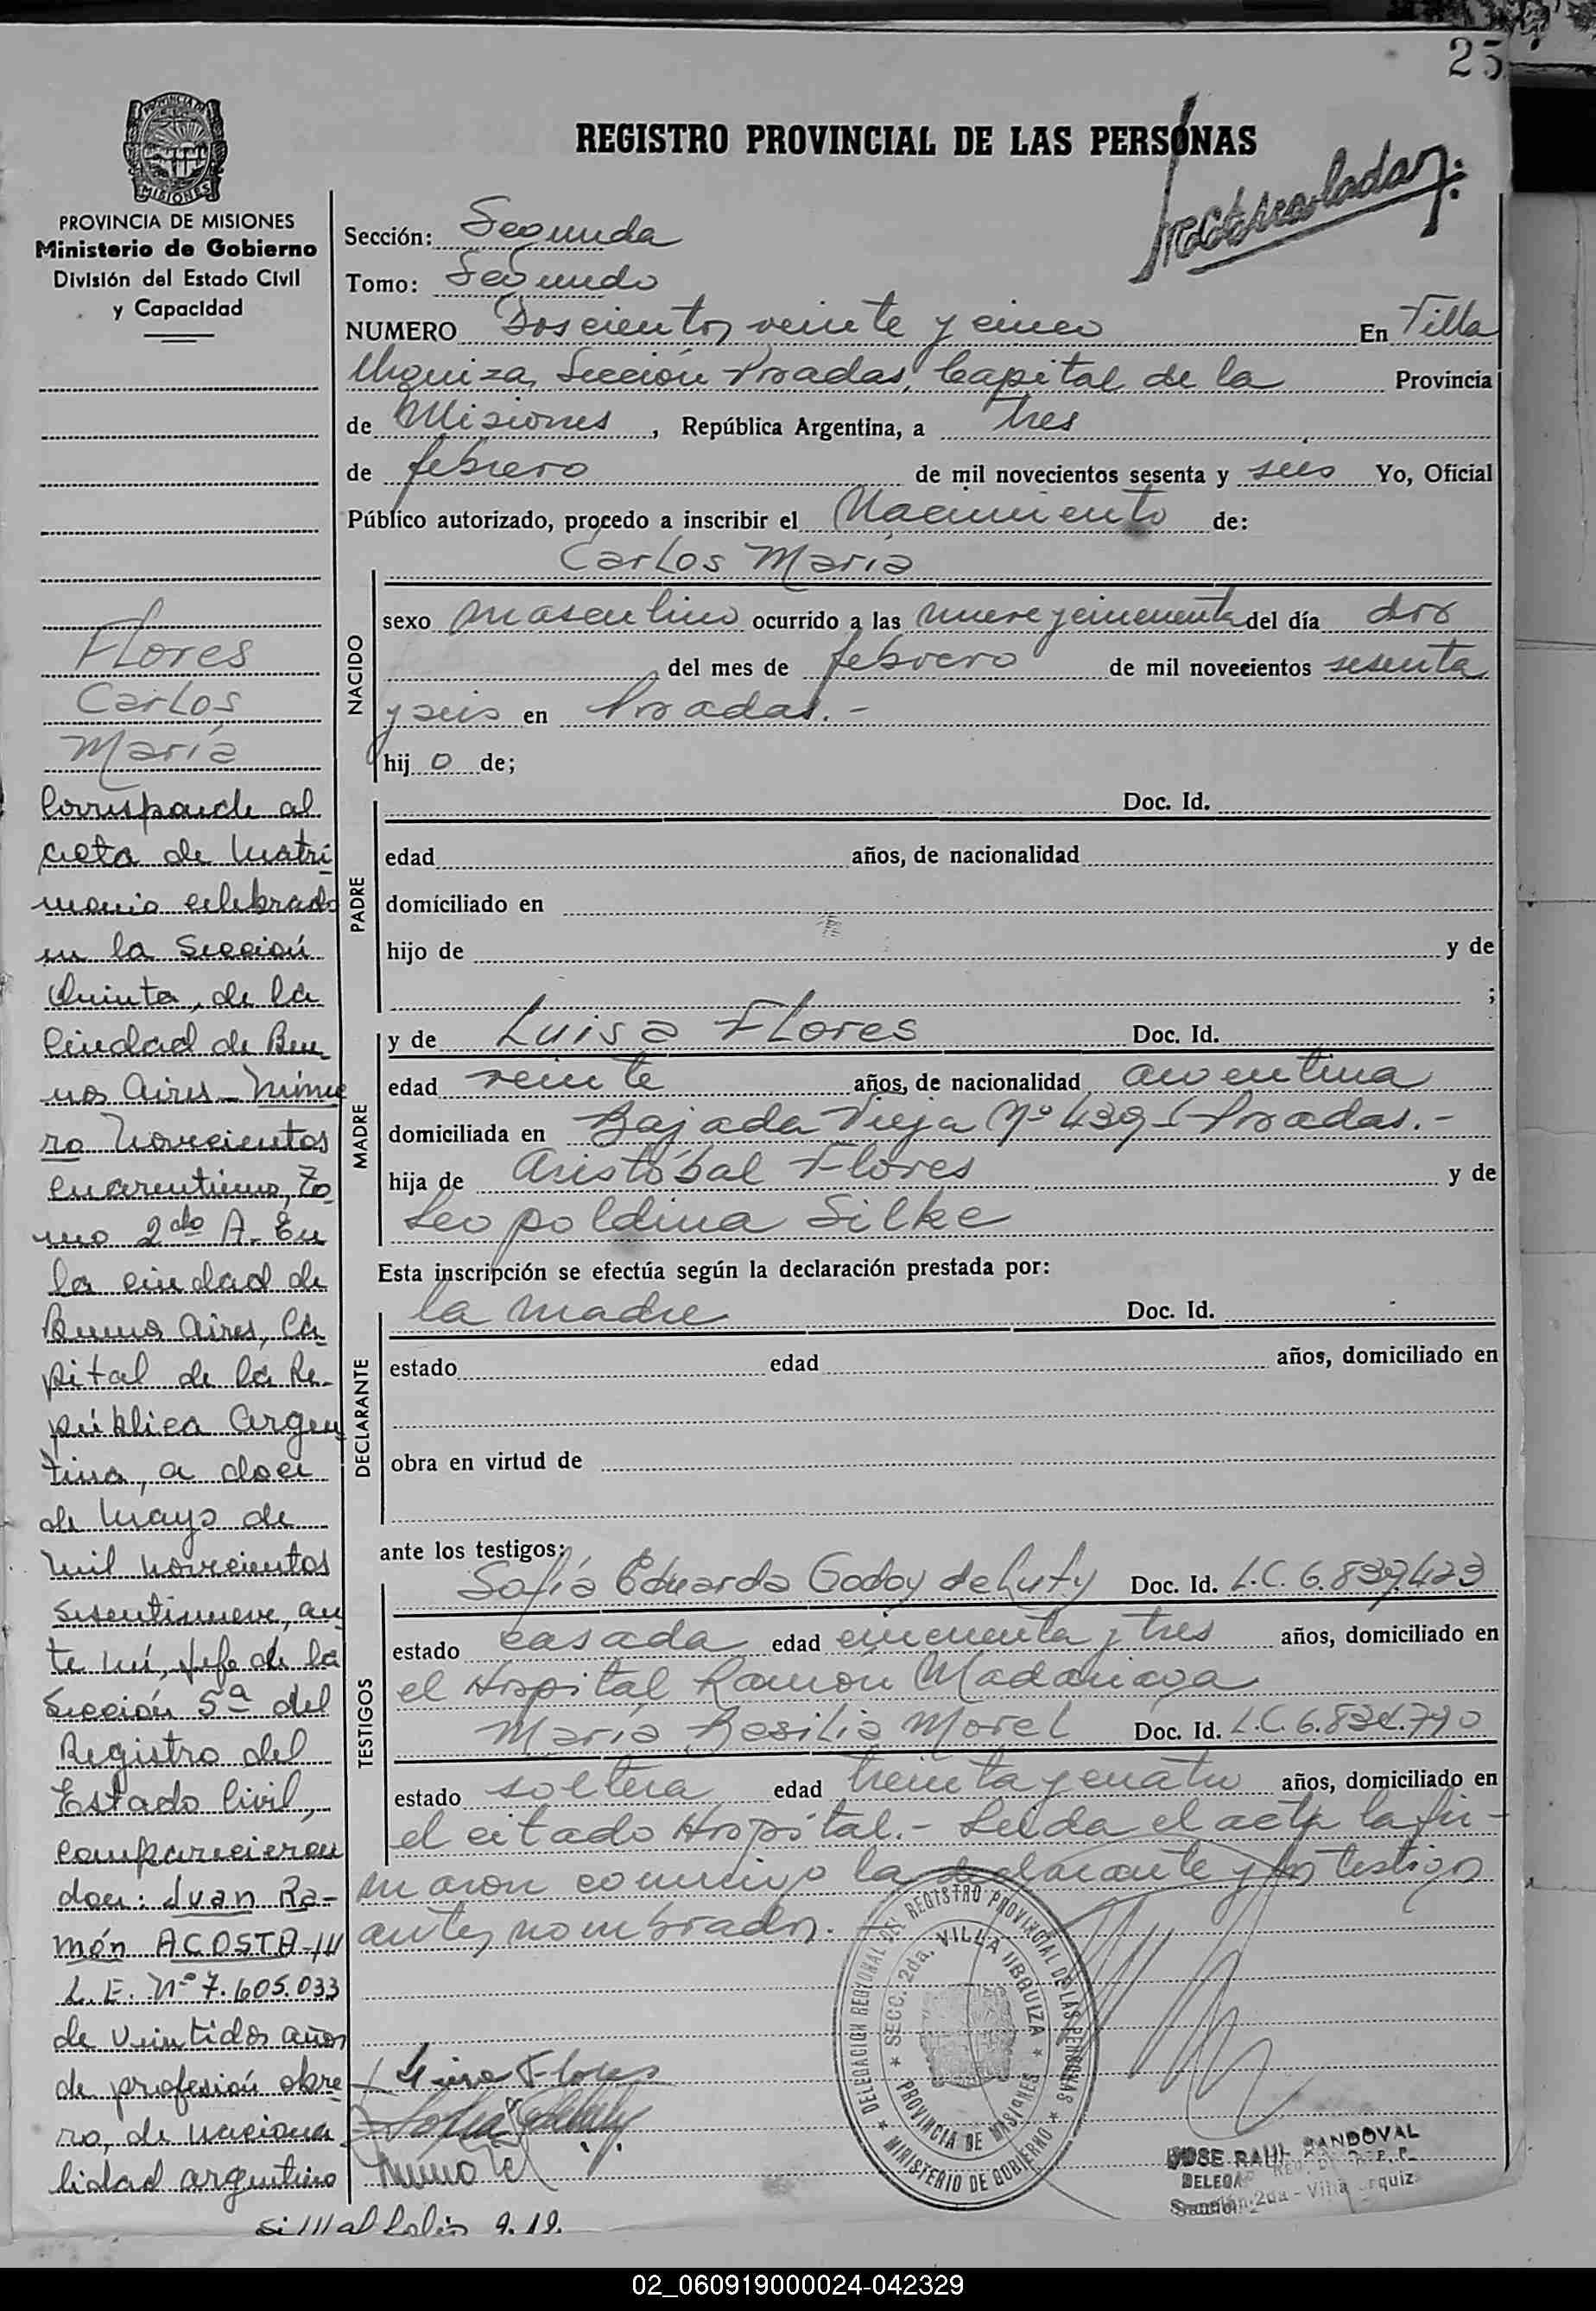 25
REGISTRO PROVINCIAL DE LAS PERSONAS
PROVINCIA DE MISIONES
Ministerio de Gobierno
División del Estado Civil
y Capacidad
Flores
Carlos
María
Corresponde al
acta de Matri
monio celebrado
en la Sección
Quinta, de la
Ciudad de Bue
nos Aires - Núme
ro Novecientos
Cuarentiuno, To
mo 2do A. En
la ciudad de
Buenos Aires, Ca
pital de la Re-
pública Argen
tina, a doce
de Mayo de
mil novecientos
sesentinueve, an
te mí, Jefe de la
Sección 5ª del
Registro del
Estado Civil,
comparecieron
don: Juan Ra-
món ACOSTA
L.E. Nº 7.605.033
de veintidos años
de profesión obre
ro, de naciona
lidad argentino
al folio 9.19.
Sección: Segunda
Tomo: Segundo
NUMERO Doscientos veinte y cinco En Villa
Urquiza, Sección Posadas, Capital de la Provincia
de Misiones, República Argentina, a tres
de febrero de mil novecientos sesenta y seis Yo, Oficial
Público autorizado, procedo a inscribir el Nacimiento de:
Carlos María
NACIDO
sexo masculino ocurrido a las nueve y cincuenta del día dos
del mes de febrero de mil novecientos sesenta
y seis en Posadas.-
hijo de;
PADRE
Doc. Id.
edad años, de nacionalidad
domiciliado en
hijo de y de
;
MADRE
y de Luisa Flores Doc. Id.
edad veinte años, de nacionalidad argentina
domiciliada en Bajada Vieja Nº 439 - Posadas.-
hija de Aristóbal Flores y de
Leopoldina Silke
Esta inscripción se efectúa según la declaración prestada por:
DECLARANTE
la madre Doc. Id.
estado edad años, domiciliado en
obra en virtud de
ante los testigos:
TESTIGOS
Sofía Eduarda Godoy de Doc. Id. L.C. 6.839.423
estado casada edad cincuenta y tres años, domiciliado en
el Hospital Ramón Madariaga
María Basilia Morel Doc. Id. L.C.
estado soltera edad treinta y cuatro años, domiciliado en
el citado Hospital.- Leida el acta la fir-
maron conmigo la declarante y los testigos
antes nombrados.-
DELEGACION REGIONAL DEL REGISTRO PROVINCIAL DE LAS PERSONAS
SECC. 2da. VILLA URQUIZA
PROVINCIA DE MISIONES
MINISTERIO DE GOBIERNO
Luisa Flores
JOSE RAUL SANDOVAL
Sección 2da - Villa Urquiza
02_060919000024-042329